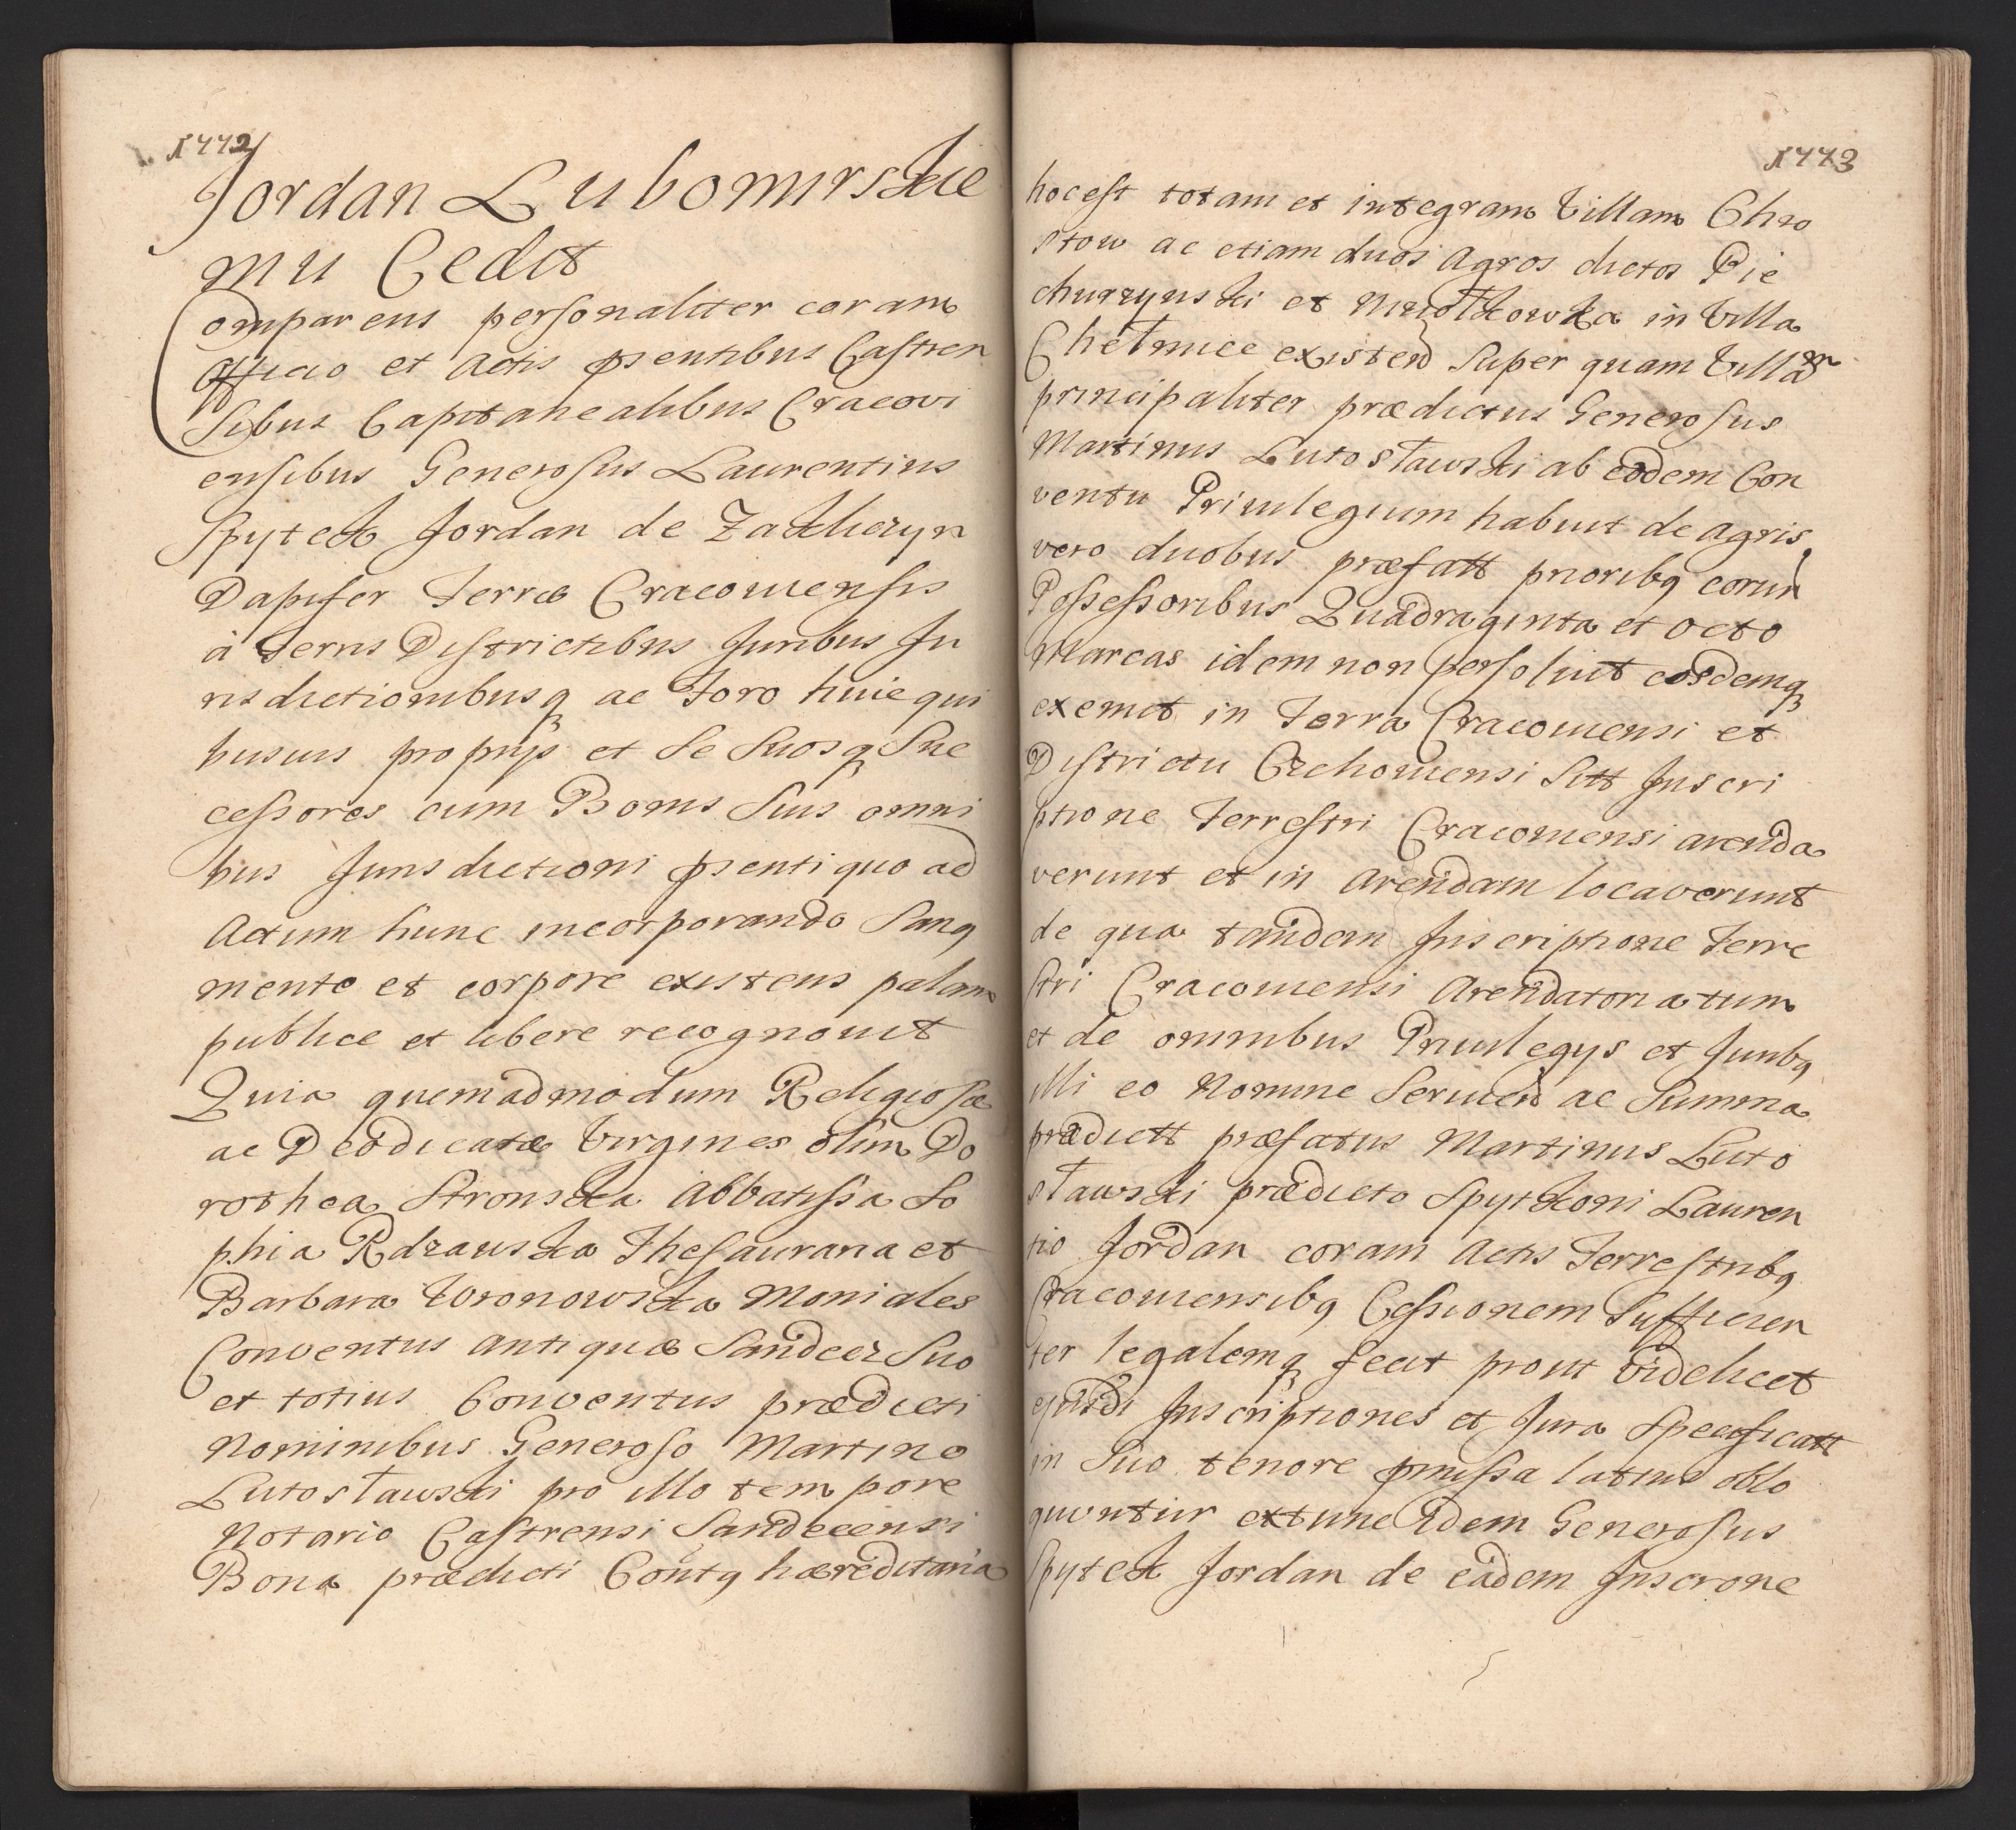 1772
Jordan Lubomirskie
mu Cedit
Comparens personaliter coram
Officio et Actis pſentibus Caſtren
ſibus Capitanealibus Cracovi
enſibus Generoſus Laurentius
Spytek Jordan de Zakliczyn
Dapifer Terræ Cracouienſis
à Terris Diſtrictibus Juribus Ju
risdictionibusq ac Foro huic qui
busuis proprijs et Se Suosq Suc
ceſsores cum Bonis Suis omni
bus Jurisdictioni pſenti quo ad
Actum hunc incorporando Sanq
mente et corpore existens palam
publice et libere recognouit
Quia quemadmodum Religioſæ
ac Deodicatæ Virgines olim Do
rothea Stronska Abbatiſsa So
phia Rdzawska Theſauraria et
Barbara Woronowska Moniales
Conventus antiquæ Sandecz Suo
et totius Conventus prædicti
Nominibus Generoſo Martino
Lutosławski pro illo tempore
Notario Caſtrensi Sandecensi
Bona prædicti Contq hæreditaria
1773
hoc eſt totam et integram Villam Chro
stow ac etiam duos Agros dictos Pie
churzynski et Mrzotkowka in Villa
Chełmice existen Super quam Villam
principaliter prædictus Generoſus
Martinus Lutosławski ab eodem Con
ventu Priuilegium habuit de Agris
vero duobus præfatt prioribq eorum
Poſseſsoribus Quadraginta et octo
Marcas idem non perſoluit eosdemq
exemit in Terra Cracouiensi et
Diſtrictu Czchouiensi Sitt Inscri
ptione Terreſtri Cracouiensi arenda
verunt et in Arendam locaverunt
de qua tandem Inscriptione Terre
ſtri Cracouiensi Arendatoria tum
et de omnibus Priuilegijs et Juribq
illi eo Nomine Seruien ac Summa
prædictt præfatus Martinus Luto
sławski prædicto Spytkoni Lauren
tio Jordan coram Actis Terreſtribq
Cracouiensibq Ceſsionem Sufficien
ter legalemq fecit prout videlicet
ejusdi Inscriptiones et Jura Specificatt
in Suo tenore pmiſsa latius oblo
quuntur extunc Idem Generoſus
Spytek Jordan de eadem Inscrone